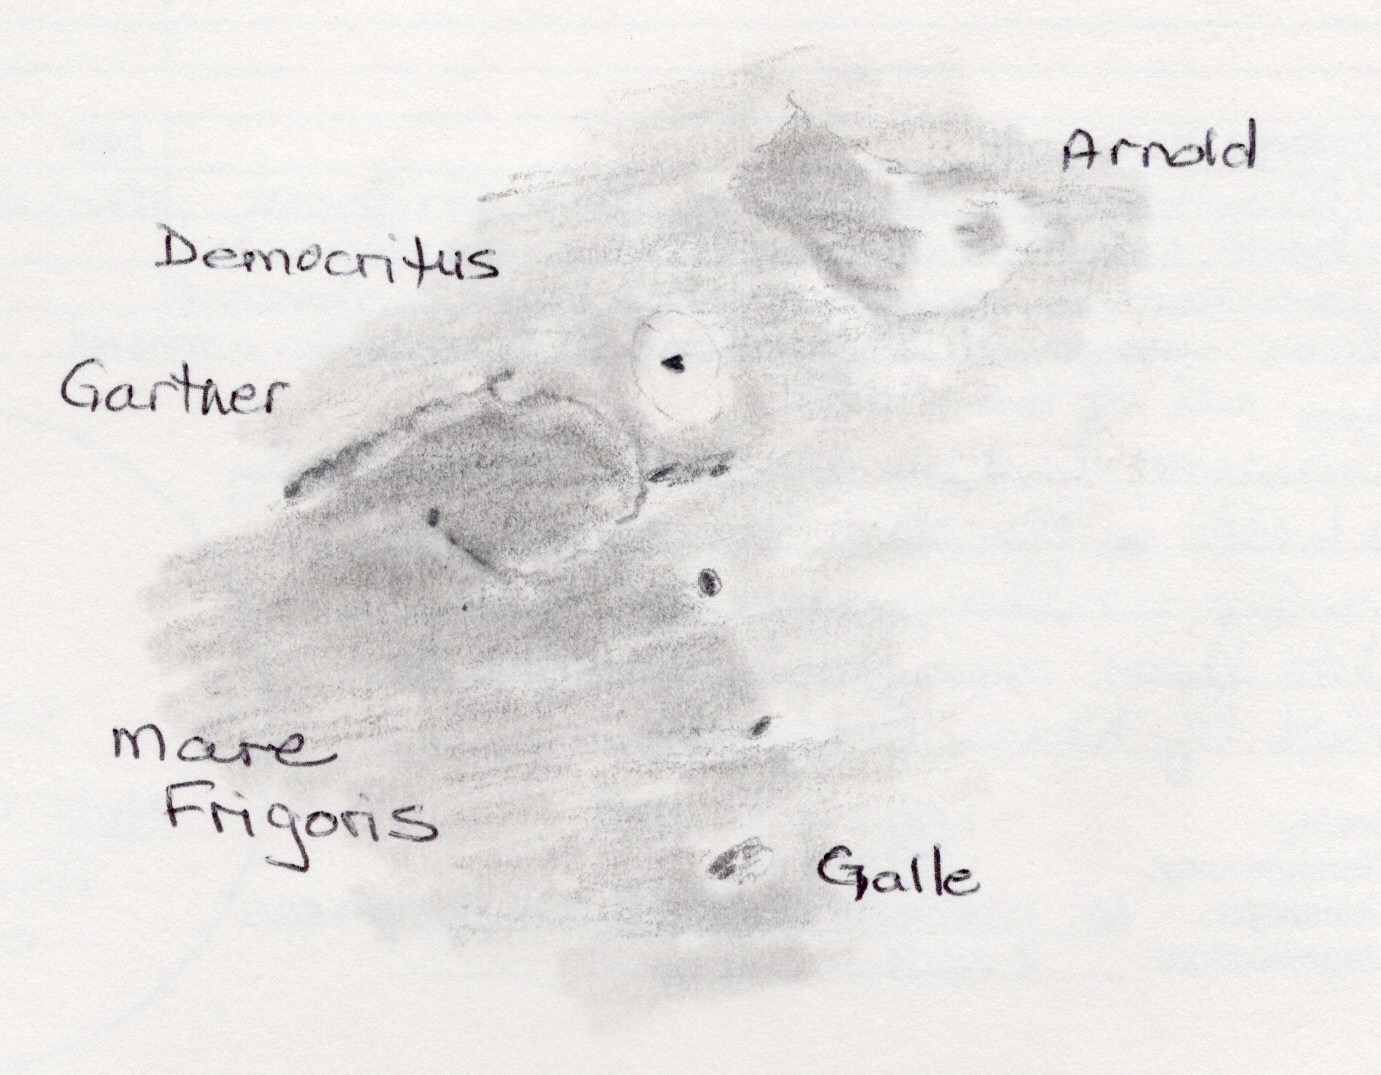 Arnold
Democritus
Gartner
Mare
Frigoris
Galle